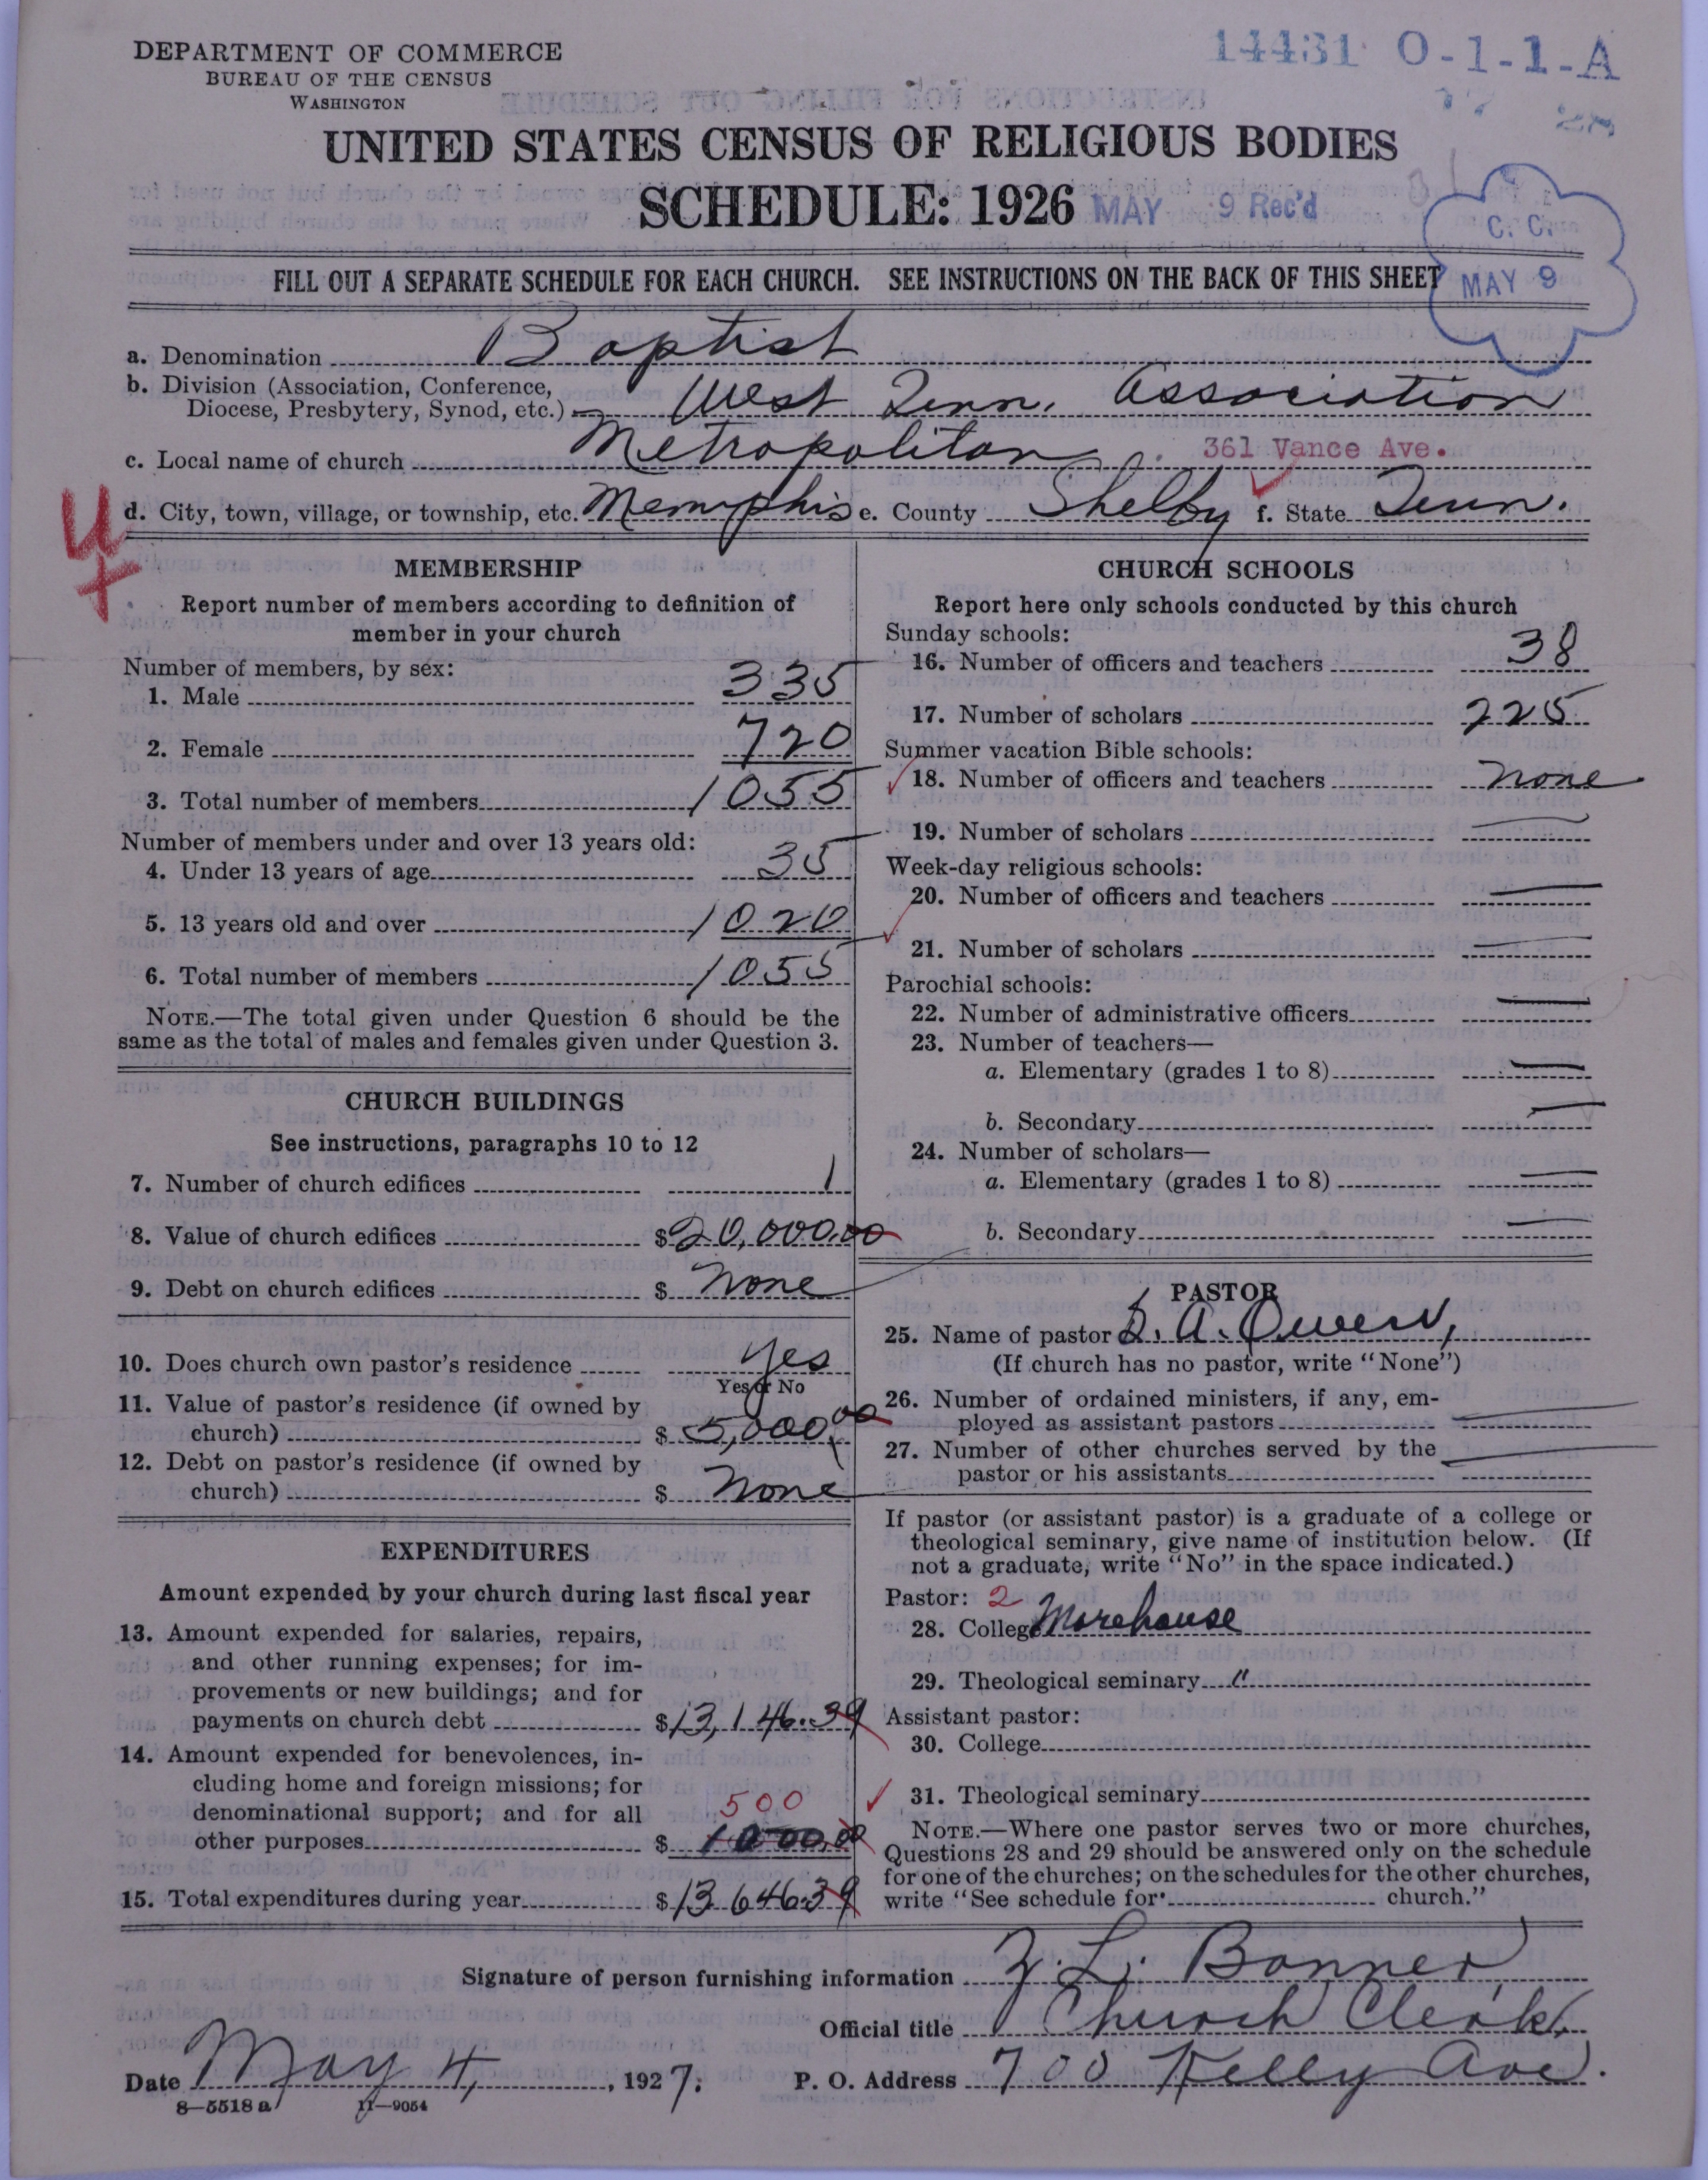 DEPARTMENT OF COMMERCE
BUREAU OF THE CENSUS
WASHINGTON
14431 O-1-1-A
UNITED STATES CENSUS OF RELIGIOUS BODIES
SCHEDULE: 1926 MAY 9 Rec'd
C. C.
MAY 9
FILL OUT A SEPARATE SCHEDULE FOR EACH CHURCH. SEE INSTRUCTIONS ON THE BACK OF THIS SHEET
a. Denomination Baptist
b. Division (Association, Conference,
Diocese, Presbytery, Synod, etc.) West Tenn. Association
c. Local name of church Metropolitan 361 Vance Ave.
d. City, town, village, or township, etc. Memphis e. County Shelby f. State Tenn.
MEMBERSHIP
Report number of members according to definition of
member in your church
Number of members, by sex:
1. Male 335
2. Female 720
3. Total number of members 1055
Number of members under and over 13 years old:
4. Under 13 years of age 35
5. 13 years old and over 1020
6. Total number of members 1055
NOTE.—The total given under Question 6 should be the
same as the total of males and females given under Question 3.
CHURCH BUILDINGS
See instructions, paragraphs 10 to 12
7. Number of church edifices 1
8. Value of church edifices $20,000.00
9. Debt on church edifices $ None
10. Does church own pastor's residence Yes
Yes or No
11. Value of pastor's residence (if owned by
church) $ 5,000.00
12. Debt on pastor's residence (if owned by
church) $ None
EXPENDITURES
Amount expended by your church during last fiscal year
13. Amount expended for salaries, repairs,
and other running expenses; for im-
provements or new buildings; and for
payments on church debt $13,146.39
14. Amount expended for benevolences, in-
cluding home and foreign missions; for
denominational support; and for all 500
other purposes $ 1000.00
15. Total expenditures during year $13646.39
CHURCH SCHOOLS
Report here only schools conducted by this church
Sunday schools:
16. Number of officers and teachers 38
17. Number of scholars 225
Summer vacation Bible schools:
18. Number of officers and teachers none
19. Number of scholars
Week-day religious schools:
20. Number of officers and teachers
21. Number of scholars
Parochial schools:
22. Number of administrative officers
23. Number of teachers—
a. Elementary (grades 1 to 8)
b. Secondary
24. Number of scholars—
a. Elementary (grades 1 to 8)
b. Secondary
PASTOR
25. Name of pastor S. A. Owen,
(If church has no pastor, write "None")
26. Number of ordained ministers, if any, em-
ployed as assistant pastors
27. Number of other churches served by the
pastor or his assistants
If pastor (or assistant pastor) is a graduate of a college or
theological seminary, give name of institution below. (If
not a graduate, write "No" in the space indicated.)
Pastor: 2
28. College Morehouse
29. Theological seminary "
Assistant pastor:
30. College
31. Theological seminary
NOTE.—Where one pastor serves two or more churches,
Questions 28 and 29 should be answered only on the schedule
for one of the churches; on the schedules for the other churches,
write "See schedule for church."
Signature of person furnishing information Z. L. Bonner
Official title Church Clerk
Date May 4, 1927; P. O. Address 700 Kelly Ave.
8—5518 a 11—9054